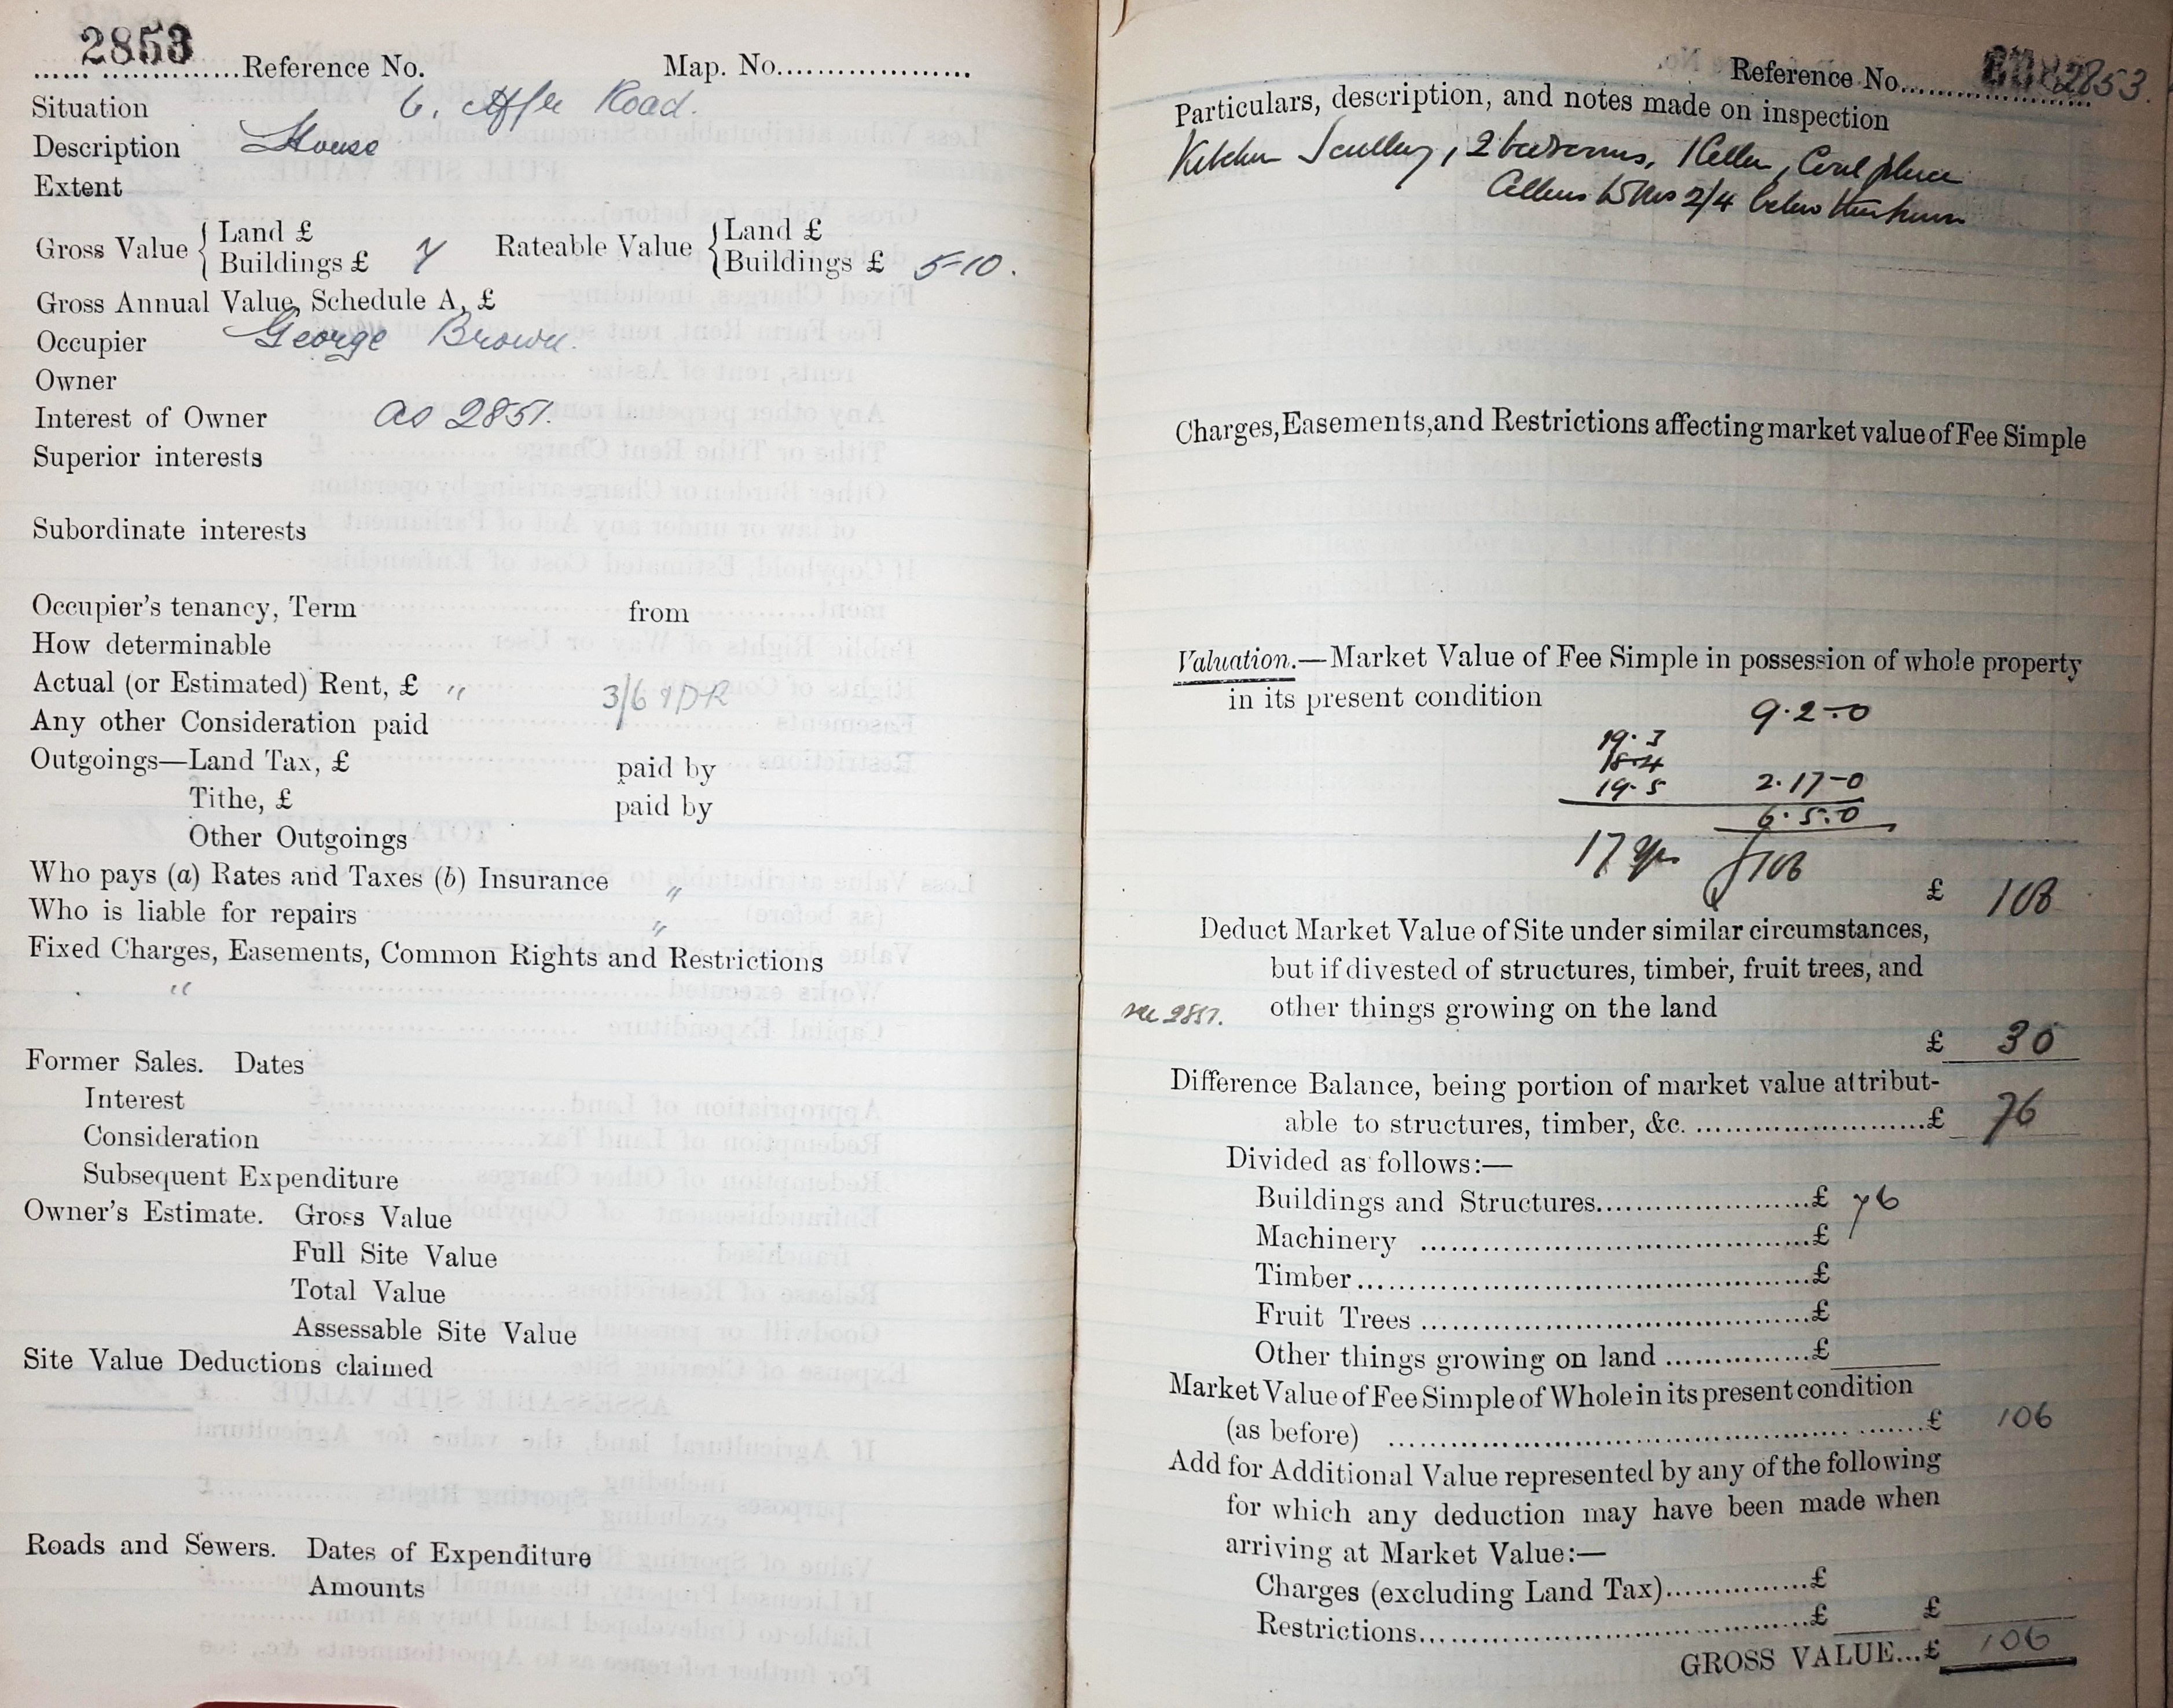 2853
Reference No. Map. No.
Situation 6, Road.
Description House
Extent
Gross Value { Land £
Buildings £ 7
Rateable Value { Land £
Buildings £ 5-10.
Gross Annual Value, Schedule A, £
Occupier George Brown.
Owner
Interest of Owner as 2851.
Superior interests
Subordinate interests
Occupier's tenancy, Term from
How determinable
Actual (or Estimated) Rent, £ " 3/6
Any other Consideration paid
Outgoings—Land Tax, £ paid by
Tithe, £ paid by
Other Outgoings
Who pays (a) Rates and Taxes (b) Insurance "
Who is liable for repairs "
Fixed Charges, Easements, Common Rights and Restrictions
"
Former Sales. Dates
Interest
Consideration
Subsequent Expenditure
Owner's Estimate. Gross Value
Full Site Value
Total Value
Assessable Site Value
Site Value Deductions claimed
Roads and Sewers. Dates of Expenditure
Amounts
Reference No. 2853.
Particulars, description, and notes made on inspection
Kitchen Scullery, 2 bedrooms, 1 Cellar, Coal place
2/4 below
Charges, Easements, and Restrictions affecting market value of Fee Simple
Valuation.—Market Value of Fee Simple in possession of whole property
in its present condition
9.2-0
19.3
18-4
19.5 2.17-0
6.5.0
17 yrs £106
£ 106
Deduct Market Value of Site under similar circumstances,
but if divested of structures, timber, fruit trees, and
see 2851. other things growing on the land
£ 30
Difference Balance, being portion of market value attribut-
able to structures, timber, &c. £ 76
Divided as follows:—
Buildings and Structures £ 76
Machinery £
Timber £
Fruit Trees £
Other things growing on land £
Market Value of Fee Simple of Whole in its present condition
(as before) £ 106
Add for Additional Value represented by any of the following
for which any deduction may have been made when
arriving at Market Value:—
Charges (excluding Land Tax) £
Restrictions £ £
GROSS VALUE... £ 106